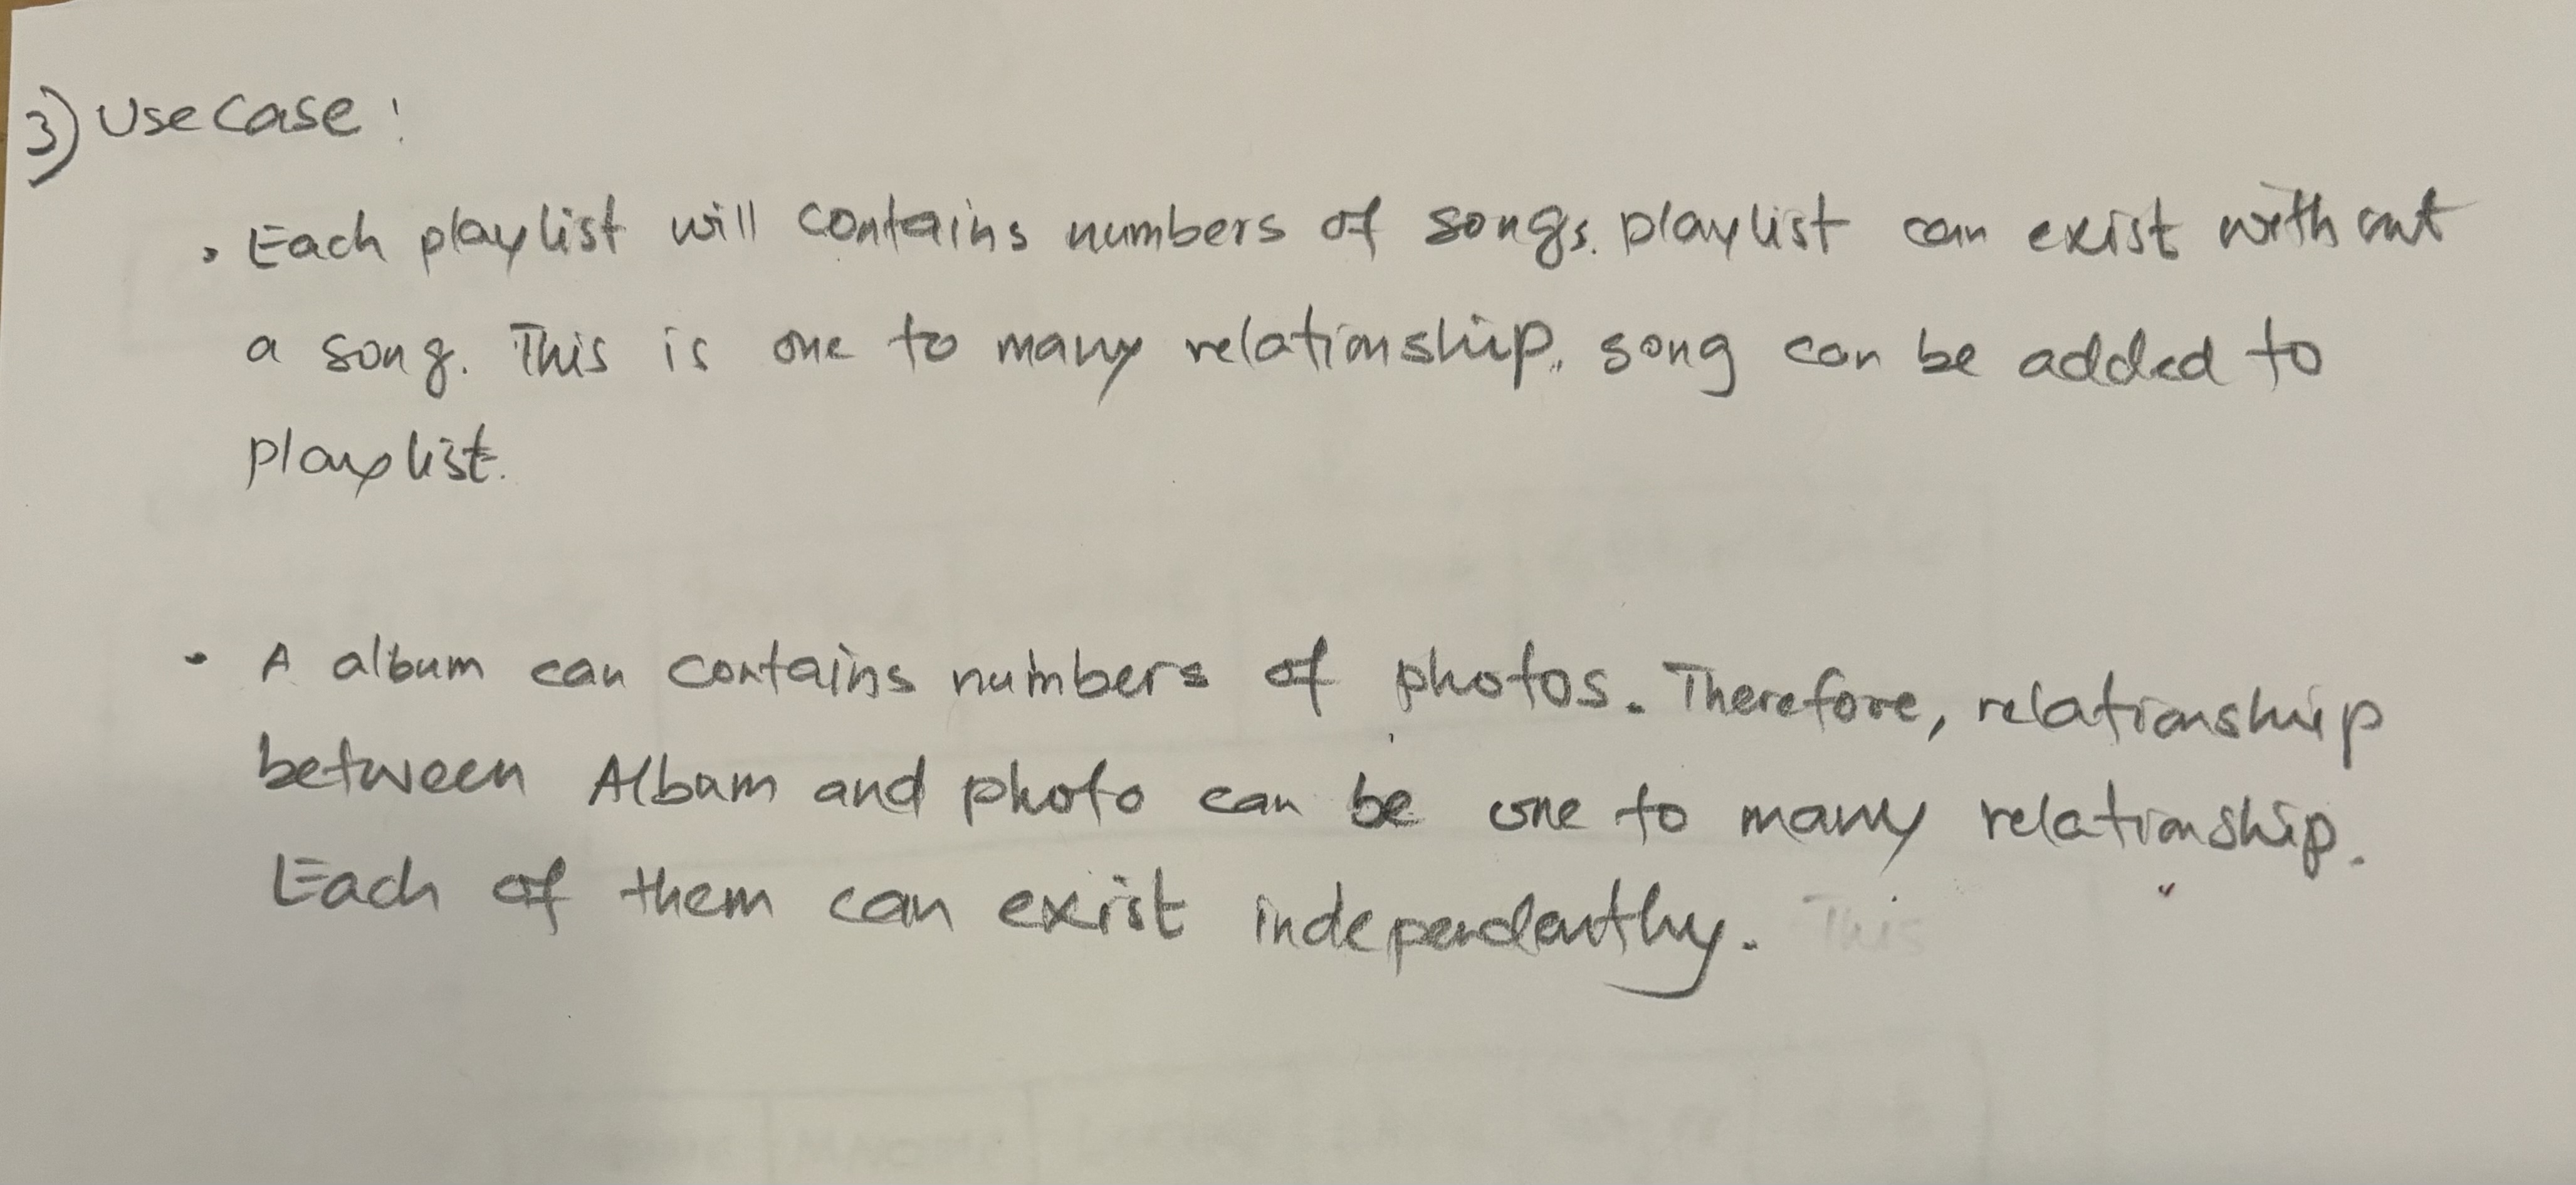 3) Use Case:
. Each playlist will contains numbers of songs. playlist can exist without
a song. This is one to many relationship. song can be added to
playlist.
- A album can contains numbers of photos. Therefore, relationship
between Album and photo can be one to many relationship.
Each of them can exist independantly. This